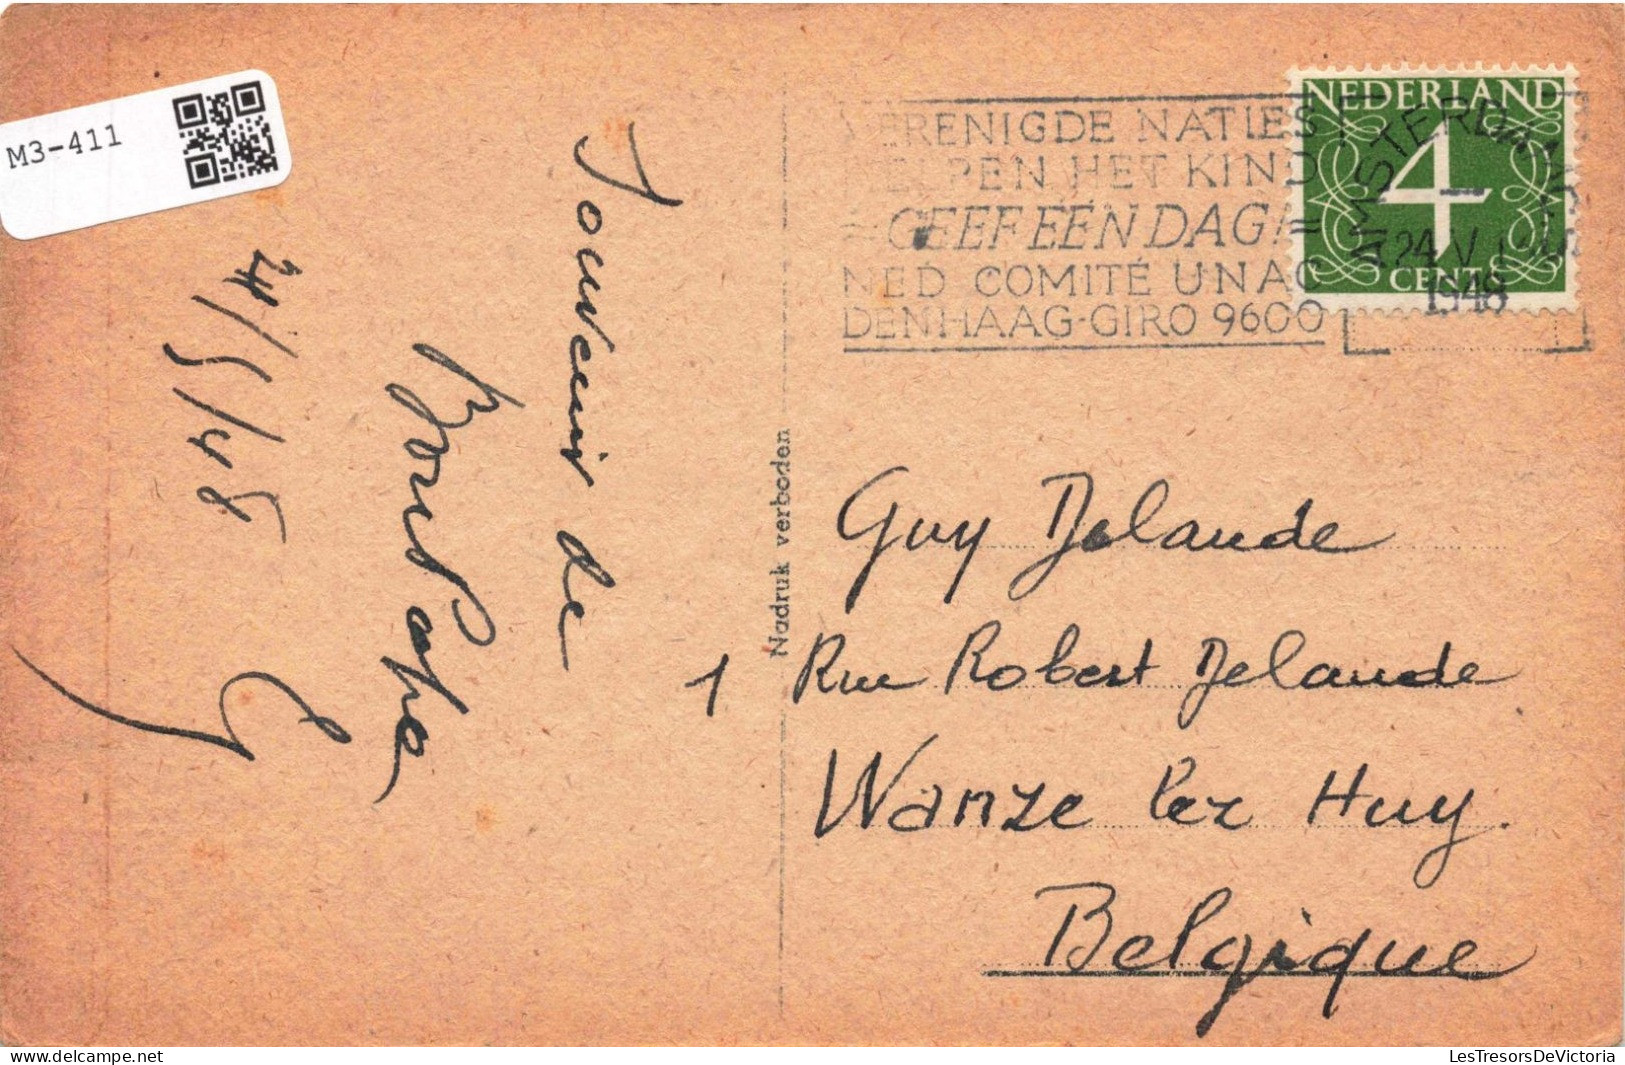 M3-411
VERENIGDE NATIES
HELPEN HET KIND
=GEEF EÉN DAG!=
NED COMITÉ UNAC
DEN HAAG-GIRO 9600
NEDERLAND
4
CENT
AMSTERDAM
24 V
1948
Souvenir de
Bon Papa
24/5/48
Nadruk verboden
Guy Delaude
1 Rue Robert Delaude
Wanze lez Huy.
Belgique
LesTresorsDeVictoria